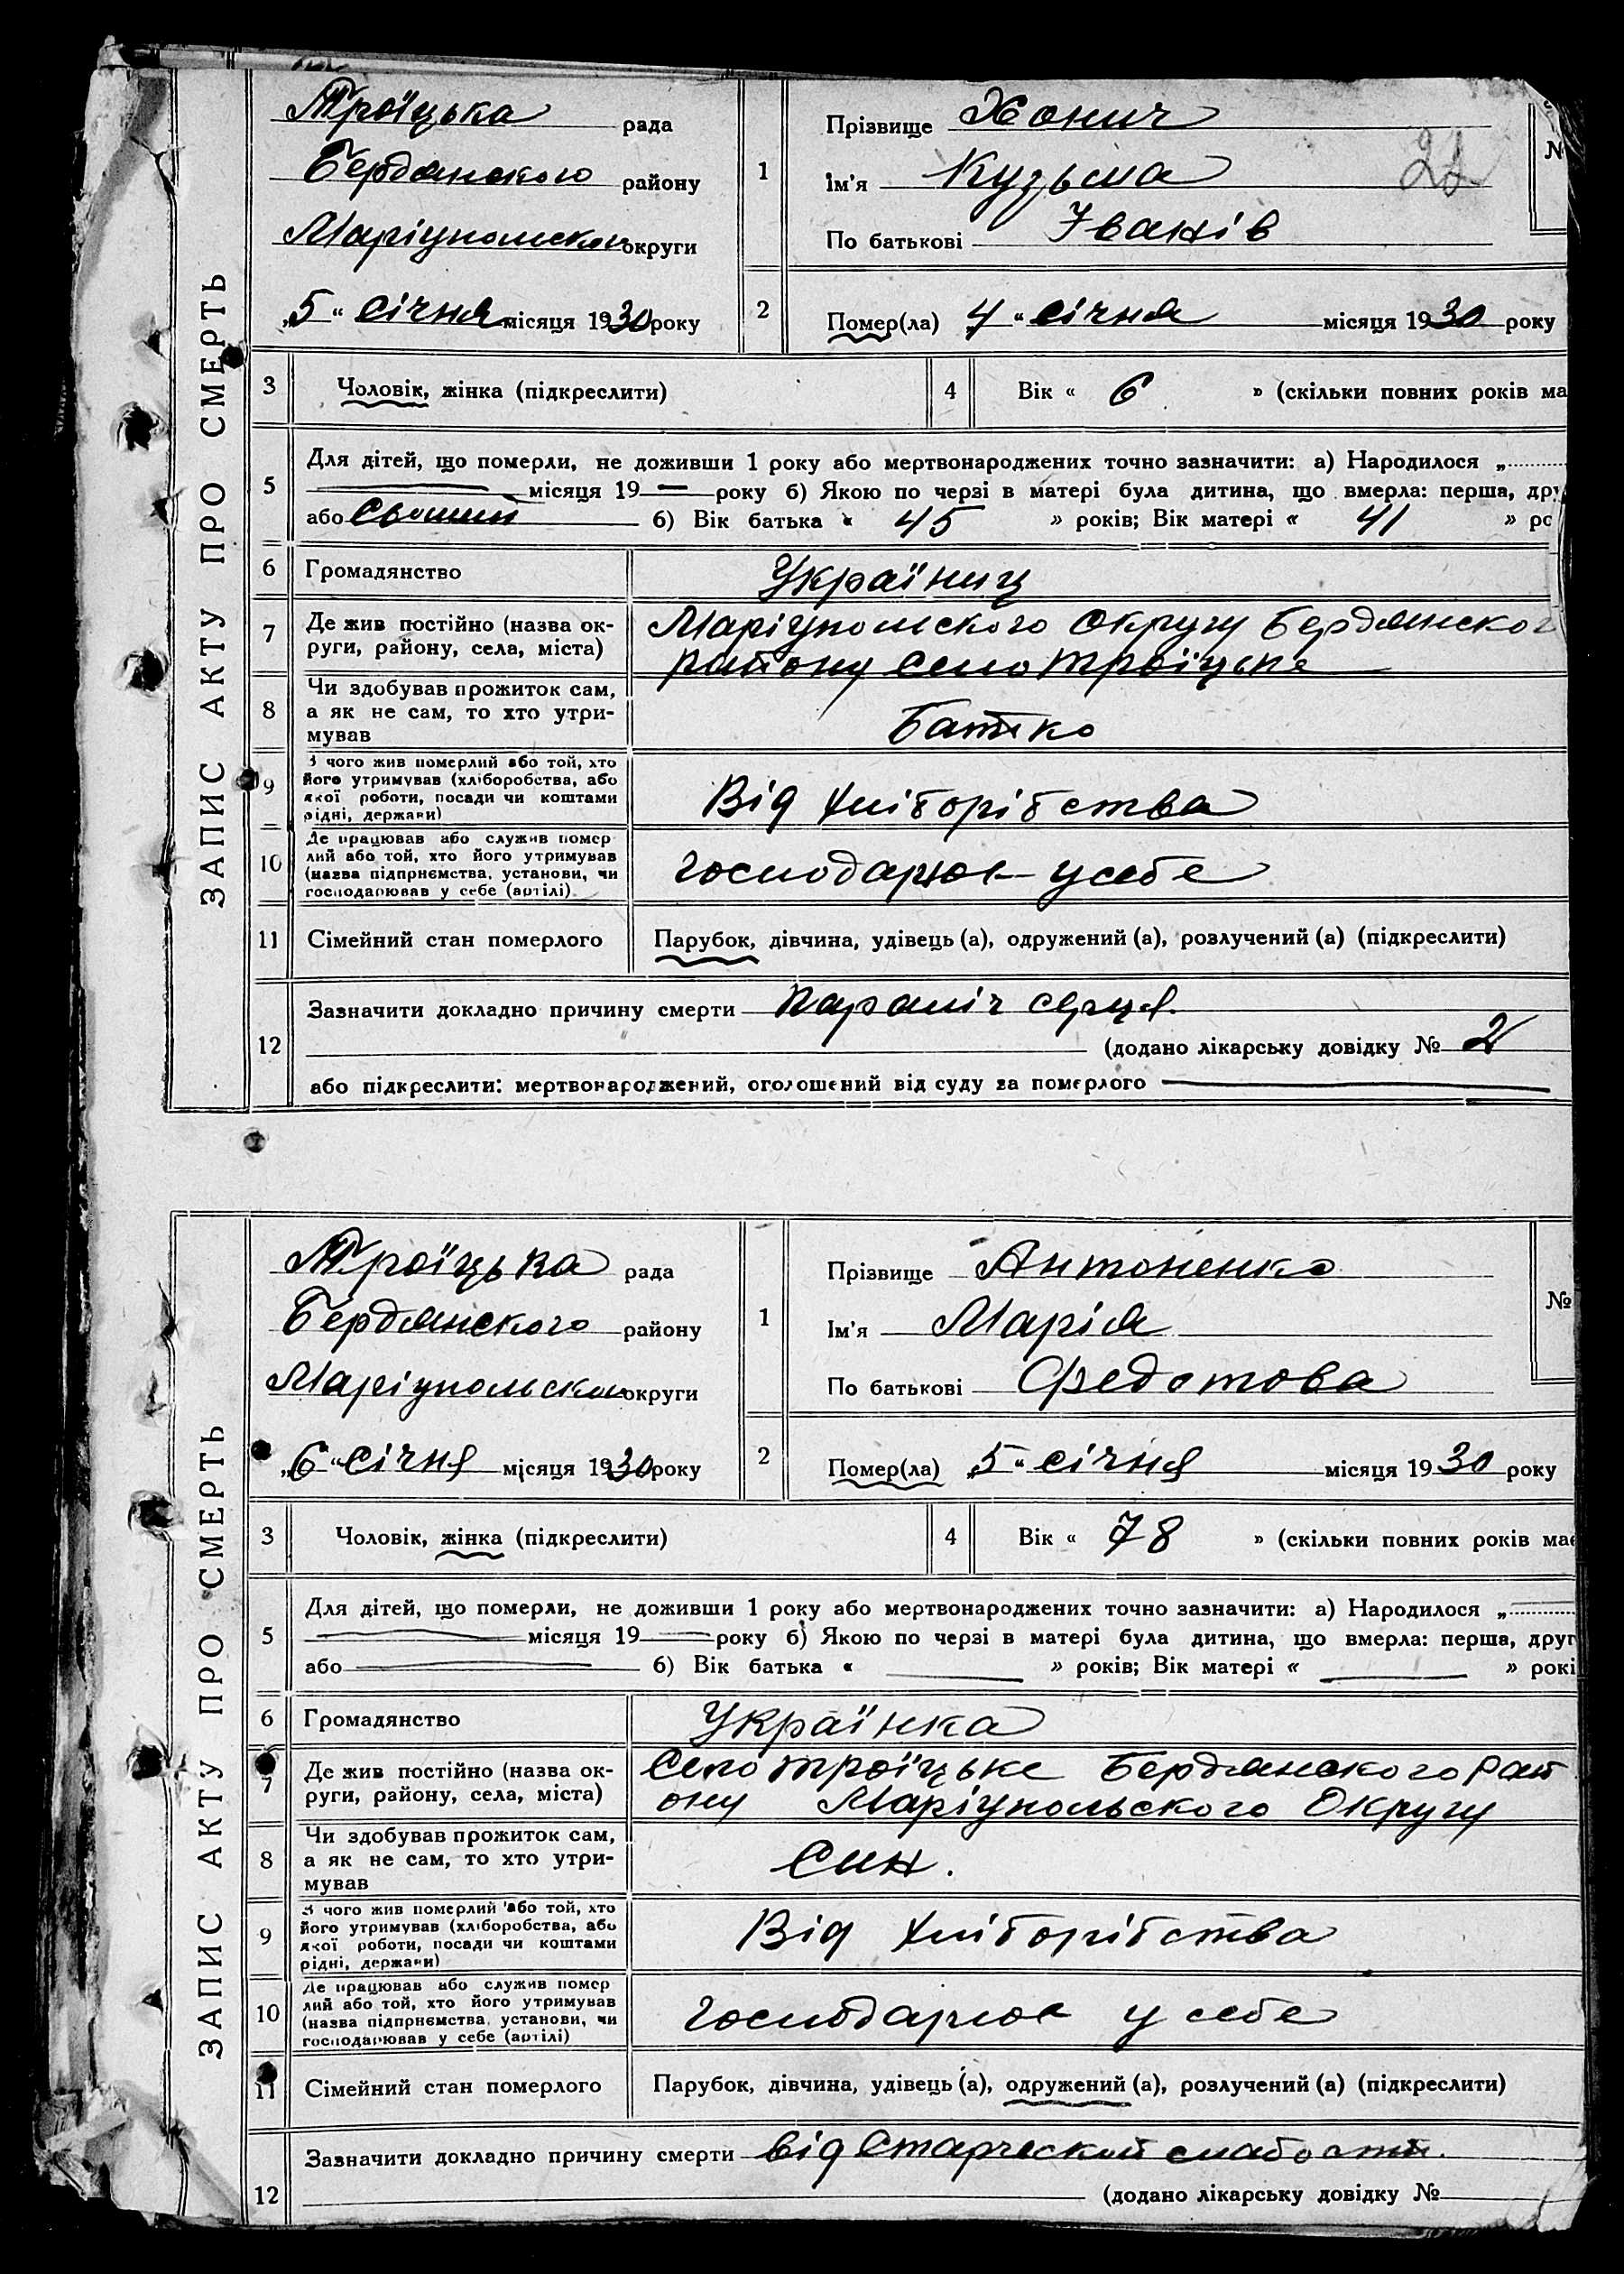 ЗАПИС АКТУ ПРО СМЕРТЬ
Троїцька рада
Бердянского району
Маріупольской округи
„5“ січня місяця 1930 року
1
Прізвище Хонич
Ім'я Кузьма
По батькові Іванів
22
№
2
Помер(ла) „4“ січня місяця 1930 року
3 Чоловік, жінка (підкреслити)
4 Вік « 6 » (скільки повних років ма
5 Для дітей, що померли, не доживши 1 року або мертвонароджених точно зазначити: а) Народилося „
місяця 19 — року б) Якою по черзі в матері була дитина, що вмерла: перша, дру
або 6) Вік батька « 45 » років; Вік матері « 41 » ро
6 Громадянство Україниц
7 Де жив постійно (назва ок-
руги, району, села, міста)
Маріупольского Округу Бердянског
району село Троїцьке
8 Чи здобував прожиток сам,
а як не сам, то хто утри-
мував
Батько
9 З чого жив померлий або той, хто
його утримував (хліборобства, або
якої роботи, посади чи коштами
рідні, держави)
Від хліборібства
10 Де працював або служив помер
лий або той, хто його утримував
(назва підприємства, установи, чи
господарював у себе (артілі)
господарює у себе
11 Сімейний стан померлого Парубок, дівчина, удівець (а), одружений (а), розлучений (а) (підкреслити)
12 Зазначити докладно причину смерти параліч серця.
(додано лікарську довідку № 2
або підкреслити: мертвонароджений, оголошений від суду за померлого
ЗАПИС АКТУ ПРО СМЕРТЬ
Троїцька рада
Бердянского району
Маріупольской округи
„6“ січня місяця 1930 року
1
Прізвище Антоненко
Ім'я Марія
По батькові Федотова
№
2
Помер(ла) „5“ січня місяця 1930 року
3 Чоловік, жінка (підкреслити)
4 Вік « 78 » (скільки повних років має
5 Для дітей, що померли, не доживши 1 року або мертвонароджених точно зазначити: а) Народилося „
місяця 19 року б) Якою по черзі в матері була дитина, що вмерла: перша, друг
або 6) Вік батька « » років; Вік матері « » рокі
6 Громадянство Українка
7 Де жив постійно (назва ок-
руги, району, села, міста)
Село Троїцьке Бердянского рай
ону Маріупольского Округу
8 Чи здобував прожиток сам,
а як не сам, то хто утри-
мував
Син.
9 З чого жив померлий або той, хто
його утримував (хліборобства, або
якої роботи, посади чи коштами
рідні, держави)
Від хліборібства
10 Де працював або служив помер
лий або той, хто його утримував
(назва підприємства, установи, чи
господарював у себе (артілі)
господарює у себе
11 Сімейний стан померлого Парубок, дівчина, удівець (а), одружений (а), розлучений (а) (підкреслити)
12 Зазначити докладно причину смерти від Старческой слабости.
(додано лікарську довідку №